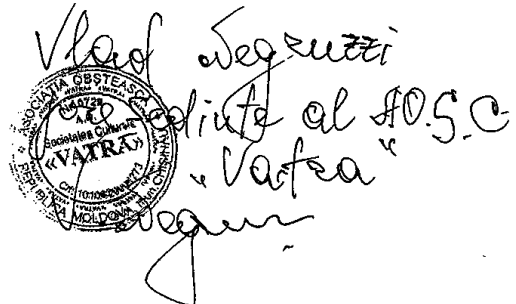 Vlad Negruzzi
Președinte al AO.S.C.
"Vatra"
ASOCIAȚIA OBȘTEASCĂ
Nr.0729
A.R.
Societatea Culturală
«VATRA»
REPUBLICA MOLDOVA